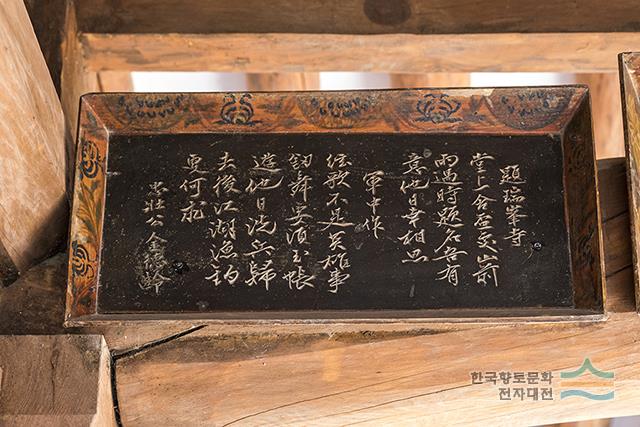 題瑞峯寺
堂上含盃山前
雨過時題名各有
意他日幸相思
軍中作
絃歌不是英雄事
釰舞要須玉帳
遊他日洗兵歸
去後江湖漁釣
更何求
忠壯公金德齡
한국향토문화
전자대전